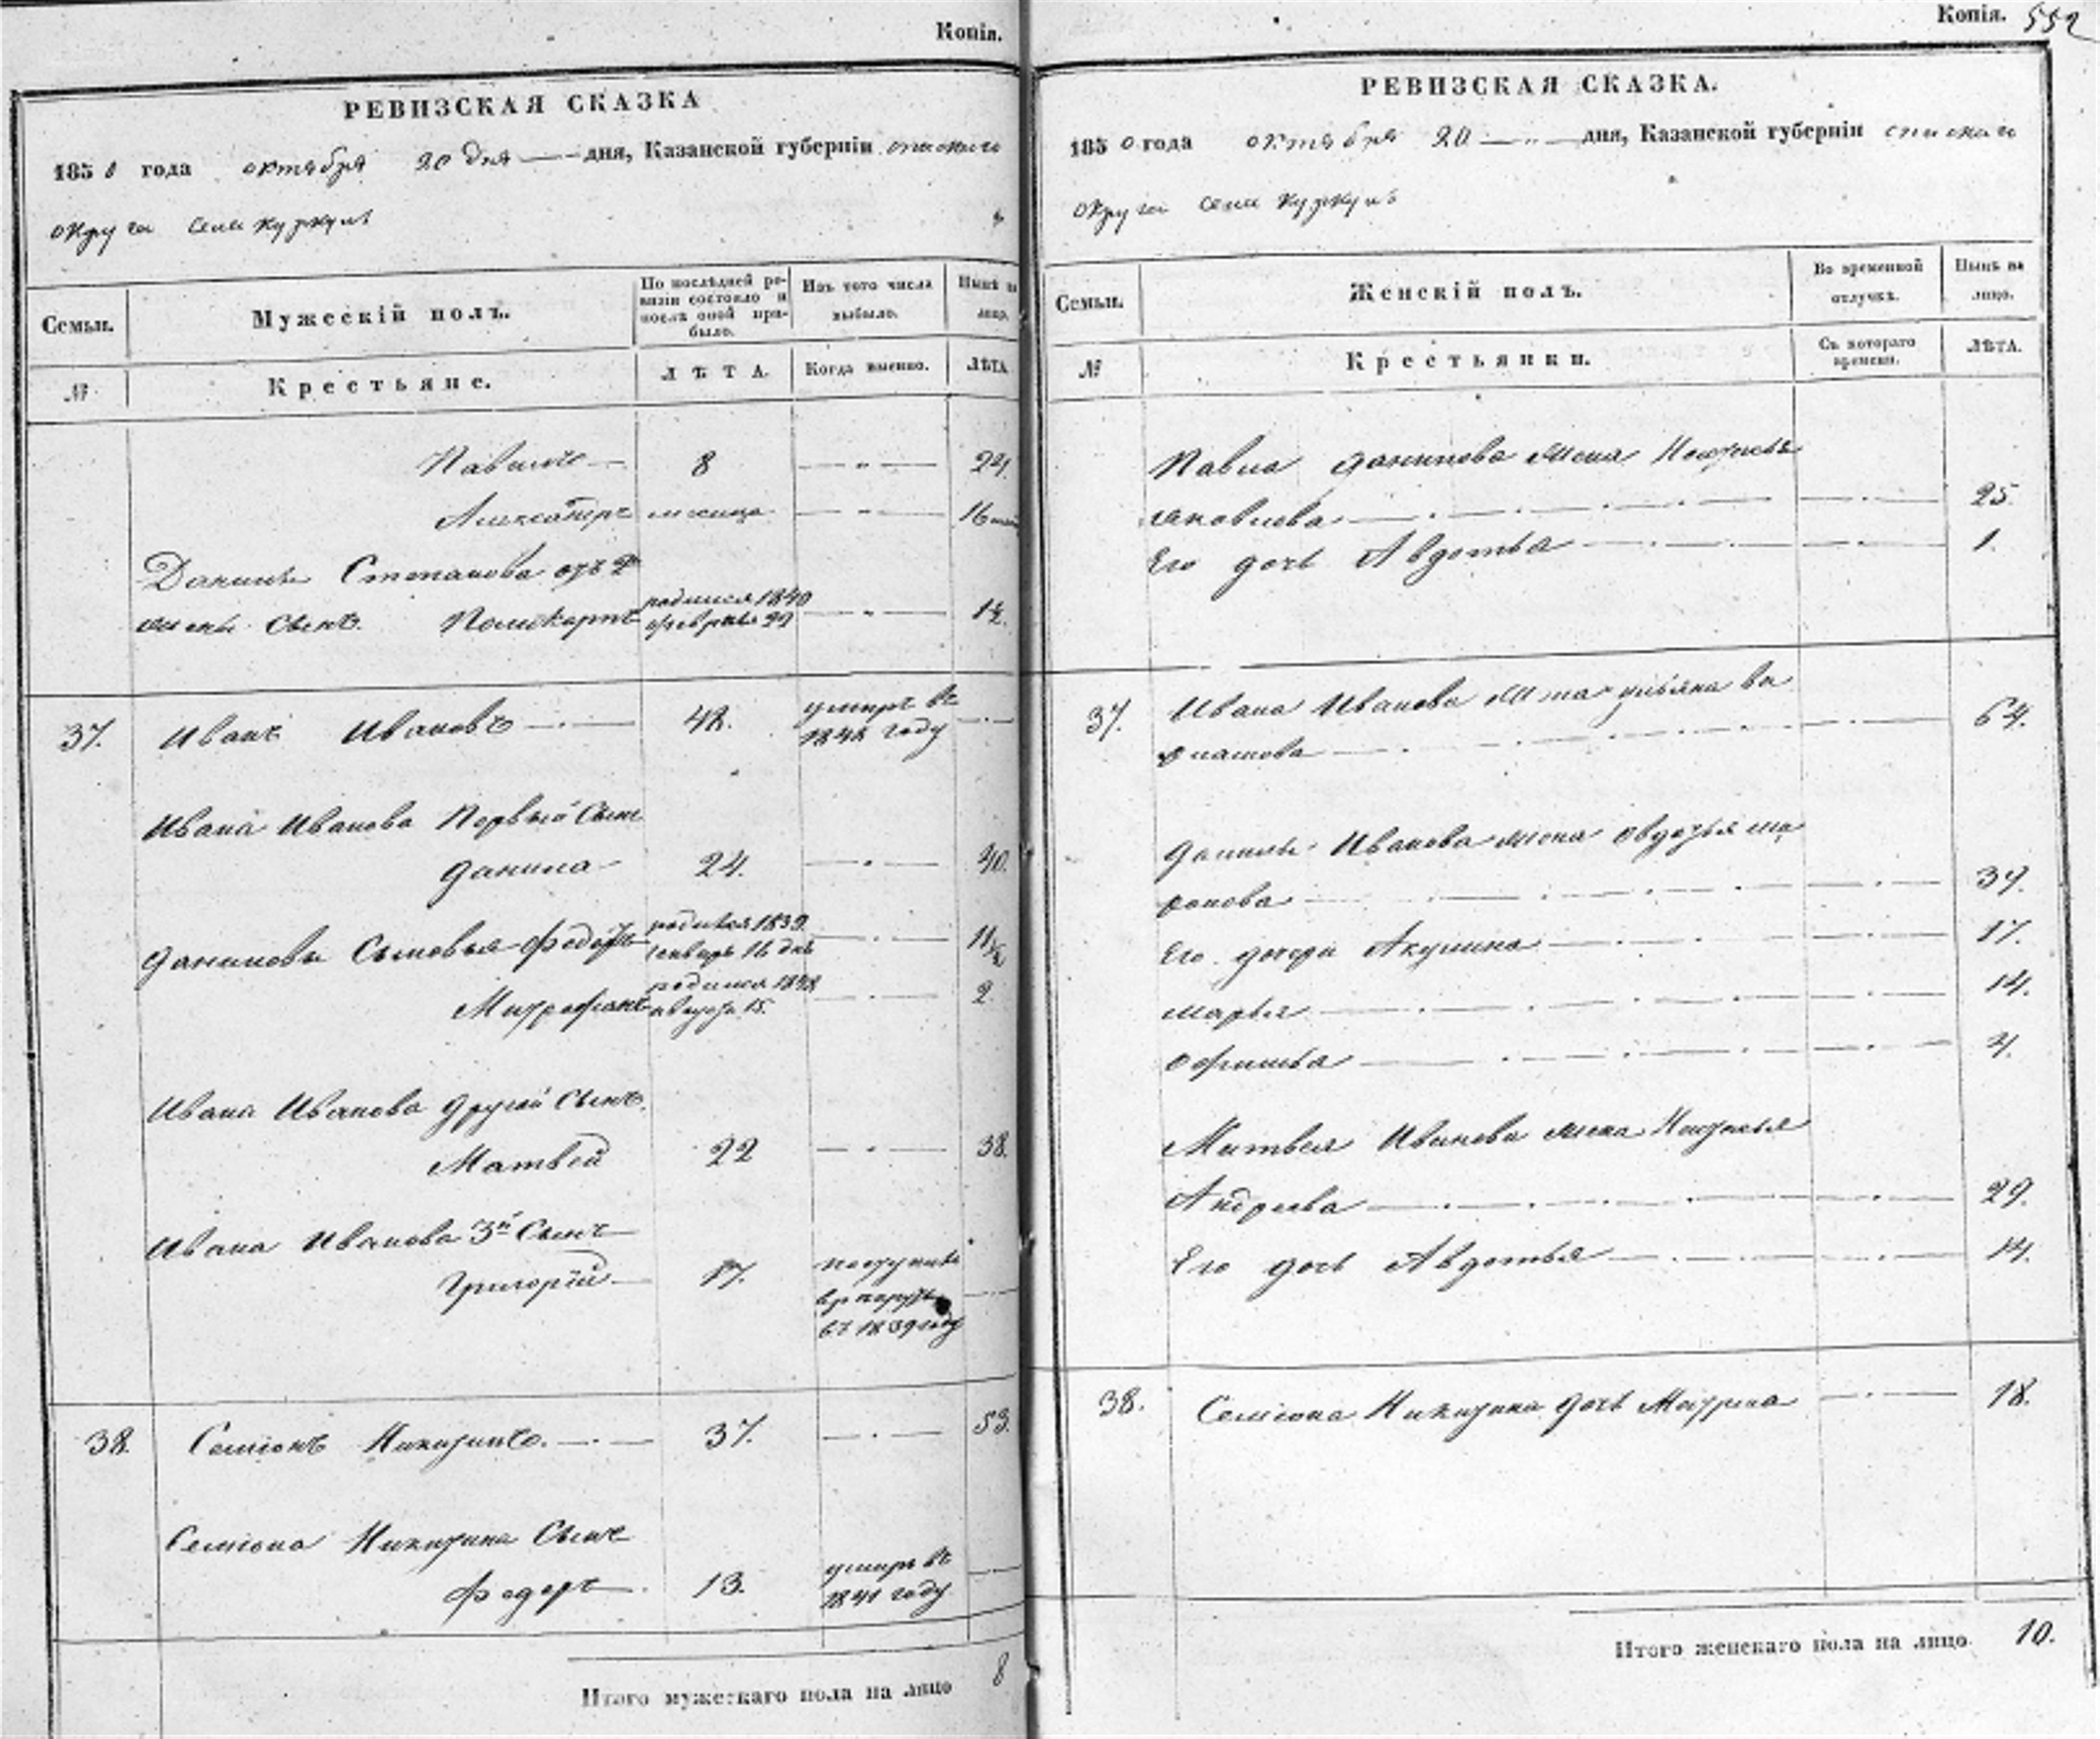 Копія.
РЕВИЗСКАЯ СКАЗКА
1850 года октября 20 дня — дня, Казанской губерніи спаскаго
округа села
Семьи.
Мужескій полъ.
По послѣдней ре-
визіи состояло и
послѣ оной при-
было.
Изъ того числа
выбыло.
Нынѣ на
лицо.
№
Крестьяне.
ЛѢТА.
Когда именно.
ЛѢТА.
Павилъ — 8 — " — 24.
Александръ месяца — " — 16
Данилы Степанова отъ 2й
жены сынъ Поликарпъ родился 1840 февраля 22 — " —
37. Иванъ Ивановъ — 48. умиръ въ
1848 году
Ивана Иванова Первый Сынъ
данила 24. — 40.
даниловы Сыновья федотъ родился 1839
генваря 16 дня — 11
Митрофанъ родился 1848
августа 15. — 2
Ивана Иванова другой Сынъ.
Матвей 22 — 38.
Ивана Иванова 3й Сынъ
Григорій — 17. поступилъ
в рекруты
въ 1839 году
38. Семіонъ Никитинъ. — 37. — 53.
Семіона Никитина Сынъ
федоръ — 13. умиръ въ
1841 году
Итого мужескаго пола на лицо 8
Копія. 552
РЕВИЗСКАЯ СКАЗКА.
1850 года октября 20 — " — дня, Казанской губерніи спаскаго
округа села
Семьи.
Женскій полъ.
Во временной
отлучкѣ.
Нынѣ на
лицо.
№
Крестьянки.
Съ котораго
времени.
ЛѢТА.
Павла данилова жена Настасья
яковлева — 25.
Его дочь Авдотья — 1.
37. Ивана Иванова жена ульяна
— 64.
данилы Иванова жена овдотья
— 39.
Его дочери Акулина — 17.
марья — 14.
офимья — 4.
Матвея Иванова жена Настасья
Андреева — 29.
Его дочь Авдотья — 14.
38. Семіона Никитина дочь Матрена — 18.
Итого женскаго пола на лицо 10.